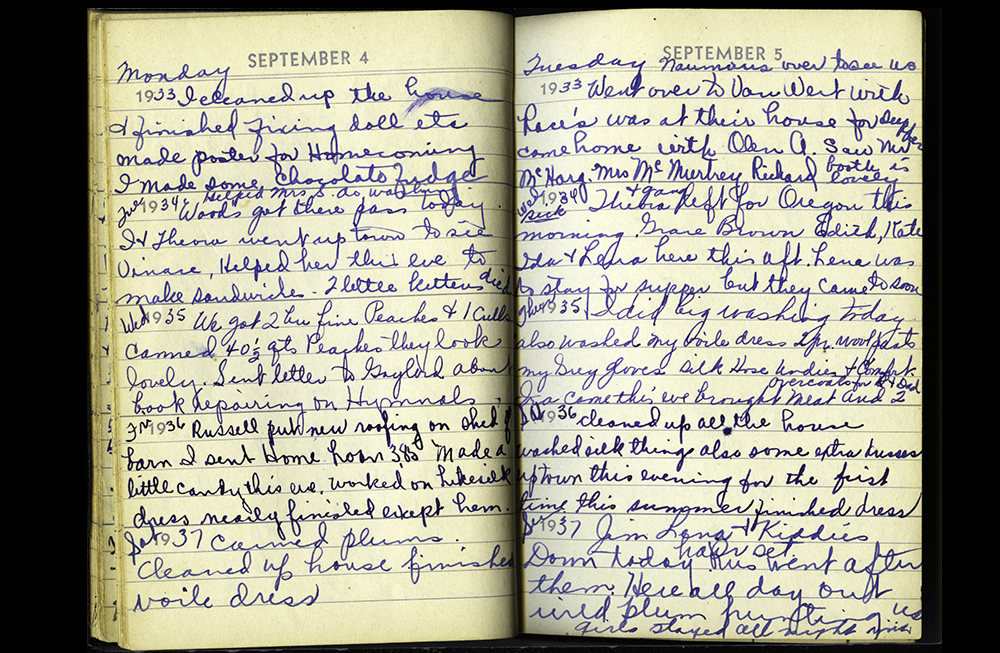 SEPTEMBER 4
Monday
1933 I cleaned up the house
& finished fixing doll etc
made poster for Homecoming
I made some chocolate fudge
Helped Mrs S do washing
1934 Woods got there pass today.
I & Theora went up town to see
Helped her this eve to
make sandwiches. 2 little kittens died
Wed 1935 We got 2 bu fine Peaches & 1 Culls
canned 40½ qts Peaches they look
lovely. Sent letter to Gaylord about
book repairing on Hymnals.
Fri 1936 Russell put new roofing on shed of
barn I sent Home Loan 3.85 Made a
little candy this eve. worked on silk
dress nearly finished except hem.
Sat 1937 canned plums.
Cleaned up house finished
voile dress
SEPTEMBER 5
Tuesday Naumans over to see us
1933 Went over to Van Wert with
was at their house for supper
came home with Olen A. Saw Mr
McHarg. Mrs McMurtrey Richard
is lovely
Wed 1934 & gang left for Oregon this
sick
morning. Grace Brown Edith, Kate
Ida & Lena here this aft. Lena was
to stay for supper but they came to soon
Thur 1935 I did big washing today
also washed my voile dress 2 pr. wool pants
my Grey gloves silk Hose undies & comfort.
overcoats for R & Dad
Ira came this eve brought meat and 2
Sat 1936 cleaned up all the house
washed silk things also some extra
uptown this evening for the first
time this summer finished dress
Sun 1937 Jim Lena & Kiddies
hair set.
Down today Rus went after
them. Here all day out
wild plum hunting
girls stayed all night